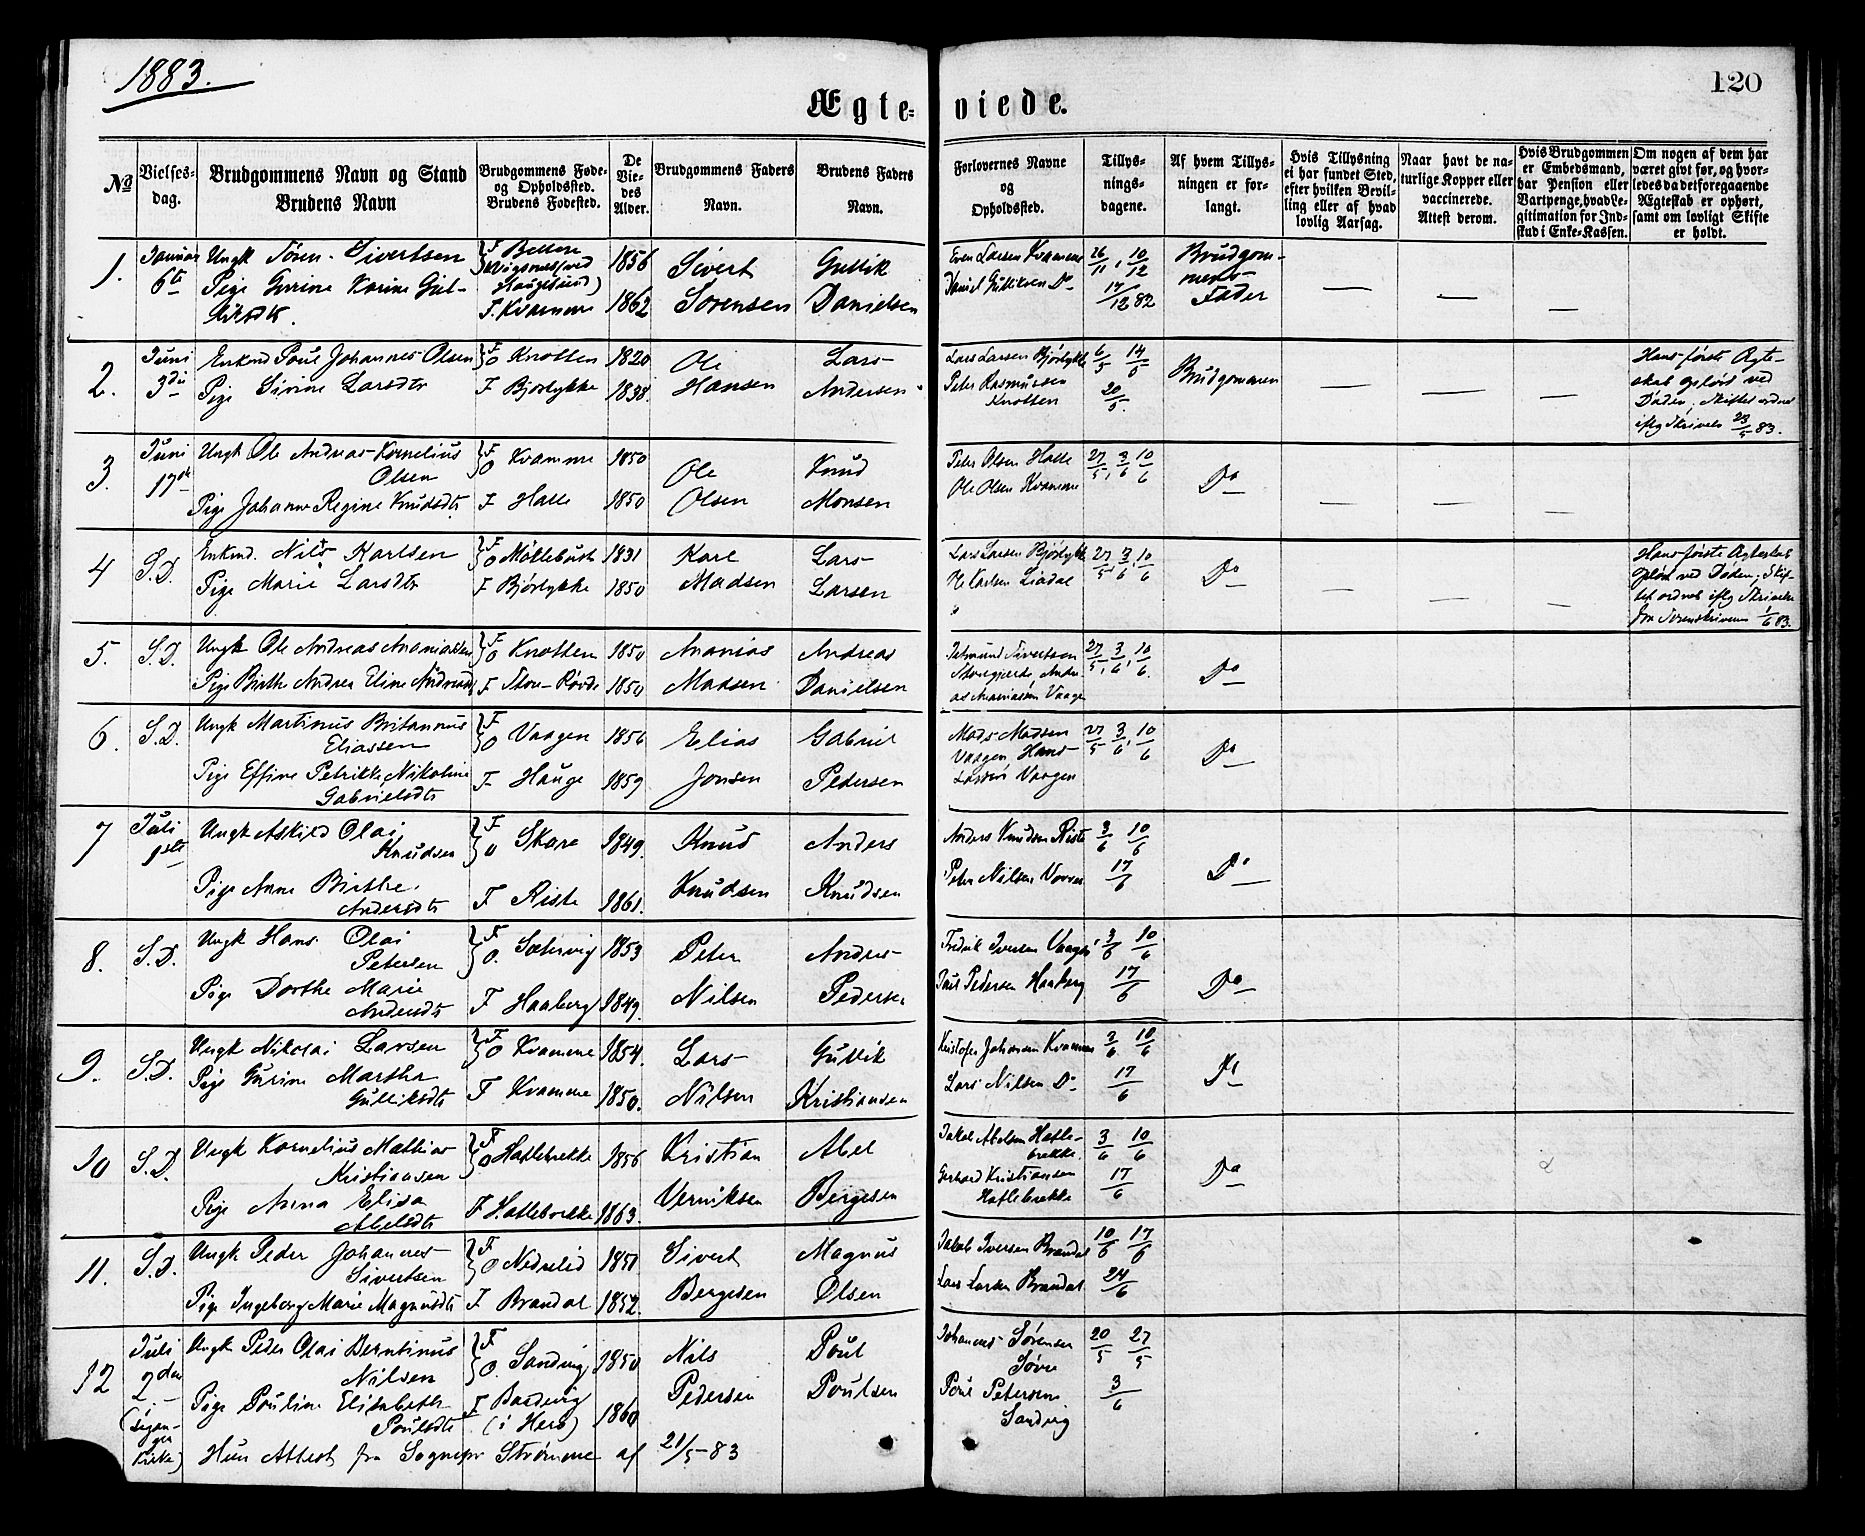 1883.
120
Ægteviede.
No
Vielses-
dag.
Brudgommens Navn og Stand
Brudens Navn
Brudgommens Føde-
og Opholdssted.
Brudens Fødested.
De
Vie-
des
Alder.
Brudgommens Faders
Navn.
Brudens Faders
Navn.
Forlovernes Navne
og
Opholdssted.
Tillys-
nings-
dagene.
Af hvem Tillys-
ningen er for-
langt.
Hvis Tillysning
ei har fundet Sted,
efter hvilken Bevil-
ling eller af hvad
lovlig Aarsag.
Naar havt de na-
turlige Kopper eller
vaccinerede.
Attest derom.
Hvis Brudgommen
er Embedsmand,
har Pension eller
Vartpenge, hvad Le-
gitimation for Ind-
skud i Enke-Kassen.
Om nogen af dem har
været givt før, og hvor-
ledes da det foregaaende
Ægteskab er ophørt,
samt om lovligt Skifte
er holdt.
1. Januar 6te
Ungk Søren Sivertsen 1856 Sivert Sørensen
Pige Gurine Karine F. Kvamme 1862 Gullik Danielsen
Even Larsen Kvamme 26/11, 10/12
Daniel Gulliksen Do 17/12 82
Brudgom-
mens
Fader
2. Juni 3die
Enkmd Poul Johannes Olsen F O Knotten 1820 Ole Hansen
Pige Sirine Larsdtr F Bjørlykke 1838. Lars Andersen
Lars Larsen Bjørlykke 6/5 14/5
Peter Rasmussen Knotten 20/5.
Brudgommen
Hans første Ægte-
skab opløst ved
Døden, Skiftet ordnet
iflg Skrivels 23/5 83.
3. Juni 17de
Ungk Ole Andreas Kornelius Olsen F O Kvamme 1850 Ole Olsen
Pige Johanne Regine Knudsdtr F Halle 1850 Knud Monsen
Peter Olsen Halle 27/5, 3/6 10/6
Ole Olsen Kvamme
Do
4 S.D.
Enkmd. Nils Karlsen F O Møllebust 1831 Karl Madsen
Pige Marie Larsdtr F Bjørlykke 1850 Lars Larsen
Lars Larsen Bjørlykke 27/5, 3/6, 10/6
Ole Karlsen Liadal
Do
Hans første Ægteskab
opløst ved Døden; Skif-
tet ordnet iflg Skrivelse
fra Sorenskriveren 1/6 83.
5. S.D.
Ungk Ole Andreas Ananiassen F O Knotten 1850 Ananias Madsen
Pige Birthe Andrea Eline Andreasdtr F Store-Røvde 1850 Andreas Danielsen
Sivertsen 27/5, 3/6, 10/6.
Ananiassen Vaagen
Do
6. S.D.
Ungk Martinus Britannus Eliassen F O Vaagen 1856 Elias Jonsen
Pige Effine Petrikke Nikoline Gabrielsdtr F Hauge 1859 Gabriel Pedersen
Mads Madsen 27/5 3/6, 10/6
Vaagen, Hans
Larsen Vaagen
Do
7 Juli 1ste
Ungk Askild Olai Knudsen F O Skare 1849. Knud Knudsen
Pige Anne Birthe Andersdtr F Riste 1861. Anders Knudsen
Anders Knudsen Riste 3/6 10/6
Peter Nilsen 17/6
Do
8. S.D.
Ungk Hans Olai Petersen F O. Sætervig 1853 Peter Nilsen
Pige Dorthe Marie Andersdtr F Haaberg 1849. Anders Pedersen
Fredrik Iversen Vaagen 3/6 10/6
Pedersen Haaberg 17/6
Do
9. S.D.
Ungk Nikolai Larsen F O Kvamme 1854. Lars Nilsen
Pige Gurine Martha Gulliksdtr F Kvamme 1850. Gullik Kristiansen
Kristofer Johansen Kvamme 3/6 10/6
Lars Nilsen Do 17/6
Do
10 S.D.
Ungk Kornelius Mathias Kristiansen F O Hatlebrekke 1856 Kristian Verniksen
Pige Anna Elisa Abelsdtr F Hatlebrekke 1863. Abel Bergesen
Jakob Abelsen Hatle-
brekke. 3/6 10/6
Gerhard Kristiansen
Hatlebrekke 17/6
Do
11. S.D.
Ungk Peder Johannes Sivertsen F O Nedrelid 1851 Sivert Bergesen
Pige Ingeborg Marie Magnusdtr F Brandal 1852. Magnus Olsen
Jakob Iversen Brandal 10/6 17/6
Lars Larsen Brandal 24/6
12 Juli 2den
(i
kirke)
Ungk Peder Olai Berntinus Nilsen F O. Sandvig 1850 Nils Pedersen
Pige Pouline Elisabeth Poulsdtr F (i Herø) 1860 Poul Poulsen
Johannes Sørensen 20/5 27/5
Søvre
Poul Petersen 3/6
Sandvig
Hun Attest fra Sognepr Strømme af 21/5-83